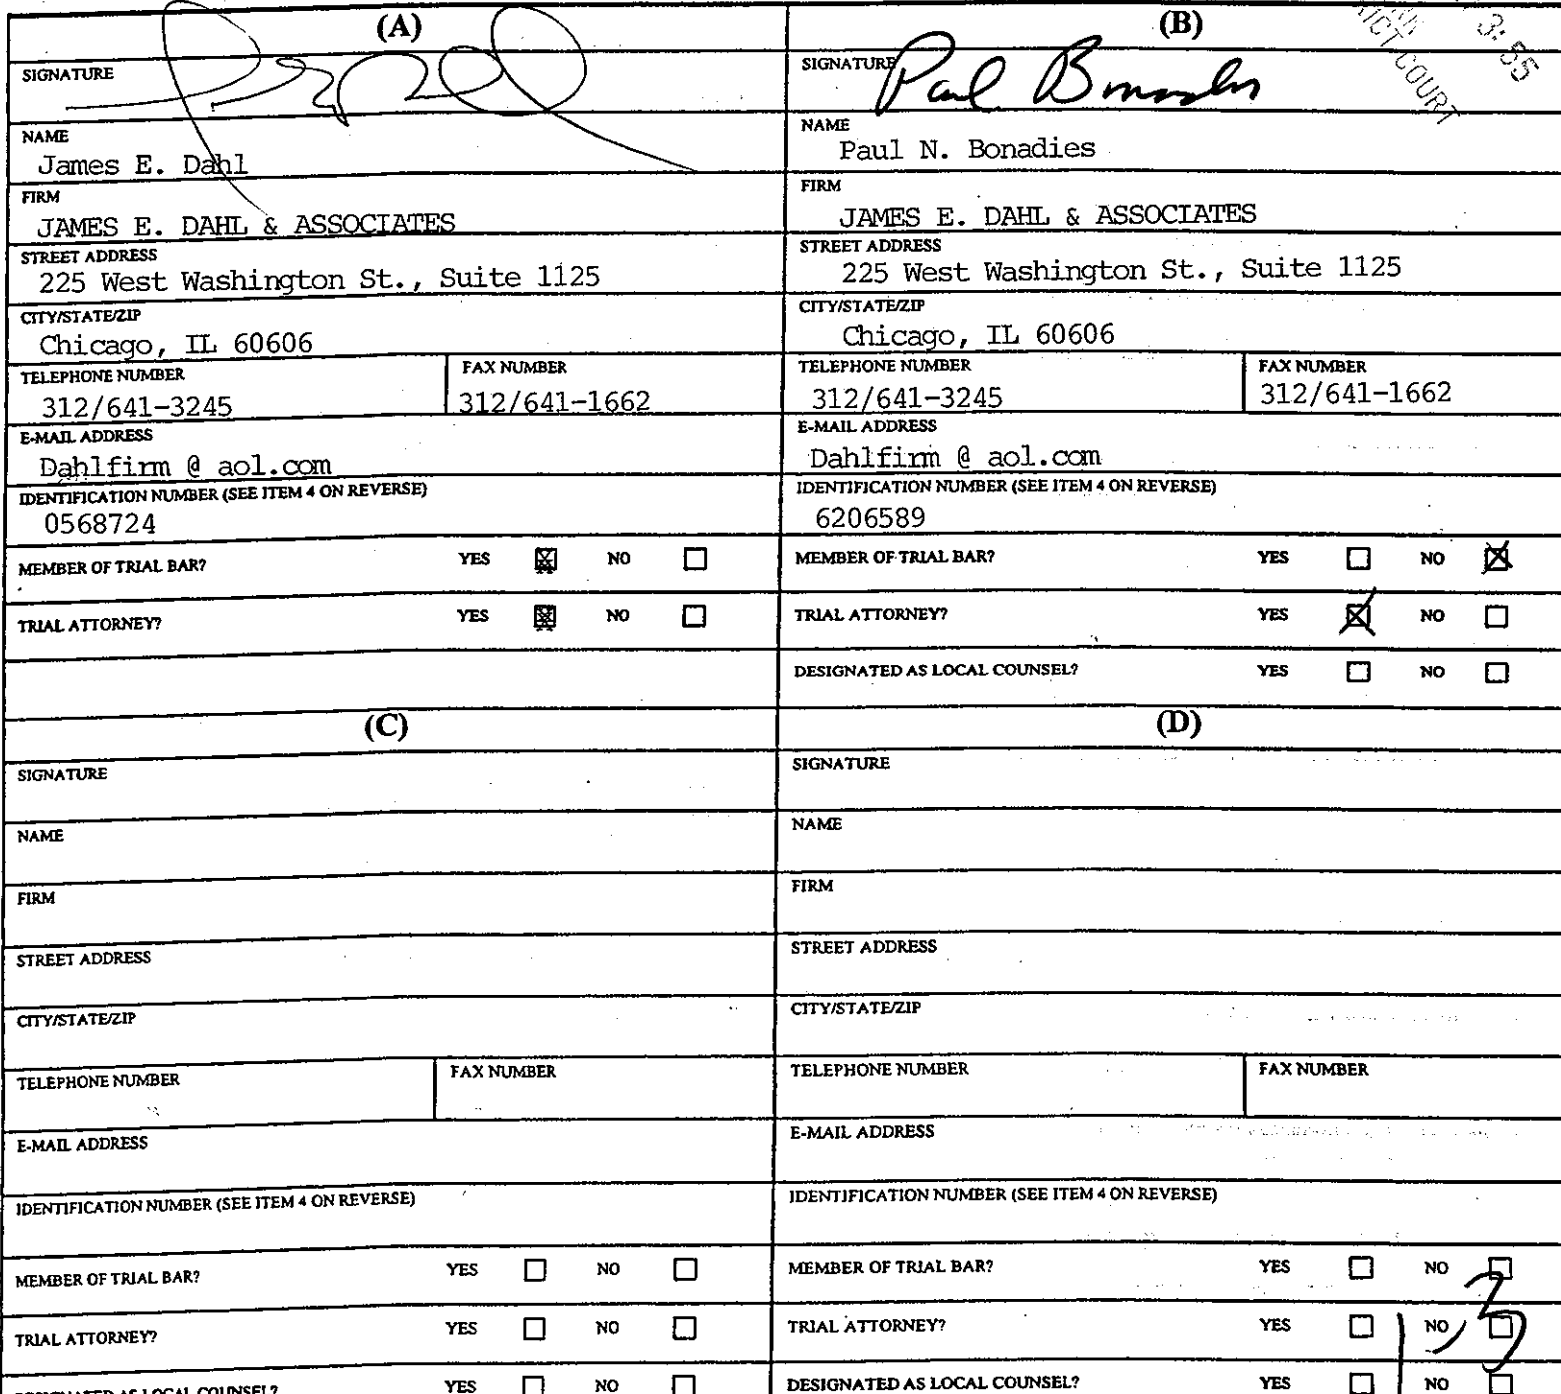 (A)
SIGNATURE
NAME
James E. Dahl
FIRM
JAMES E. DAHL & ASSOCIATES
STREET ADDRESS
225 West Washington St., Suite 1125
CITY/STATE/ZIP
Chicago, IL 60606
TELEPHONE NUMBER
312/641-3245
FAX NUMBER
312/641-1662
E-MAIL ADDRESS
Dahlfirm @ aol.com
IDENTIFICATION NUMBER (SEE ITEM 4 ON REVERSE)
0568724
MEMBER OF TRIAL BAR? YES NO
TRIAL ATTORNEY? YES NO
(B)
3:55
COURT
SIGNATURE
Paul Bonadies
NAME
Paul N. Bonadies
FIRM
JAMES E. DAHL & ASSOCIATES
STREET ADDRESS
225 West Washington St., Suite 1125
CITY/STATE/ZIP
Chicago, IL 60606
TELEPHONE NUMBER
312/641-3245
FAX NUMBER
312/641-1662
E-MAIL ADDRESS
Dahlfirm @ aol.com
IDENTIFICATION NUMBER (SEE ITEM 4 ON REVERSE)
6206589
MEMBER OF TRIAL BAR? YES NO
TRIAL ATTORNEY? YES NO
DESIGNATED AS LOCAL COUNSEL? YES NO
(C)
SIGNATURE
NAME
FIRM
STREET ADDRESS
CITY/STATE/ZIP
TELEPHONE NUMBER
FAX NUMBER
E-MAIL ADDRESS
IDENTIFICATION NUMBER (SEE ITEM 4 ON REVERSE)
MEMBER OF TRIAL BAR? YES NO
TRIAL ATTORNEY? YES NO
DESIGNATED AS LOCAL COUNSEL? YES NO
(D)
SIGNATURE
NAME
FIRM
STREET ADDRESS
CITY/STATE/ZIP
TELEPHONE NUMBER
FAX NUMBER
E-MAIL ADDRESS
IDENTIFICATION NUMBER (SEE ITEM 4 ON REVERSE)
MEMBER OF TRIAL BAR? YES NO
TRIAL ATTORNEY? YES NO
DESIGNATED AS LOCAL COUNSEL? YES NO